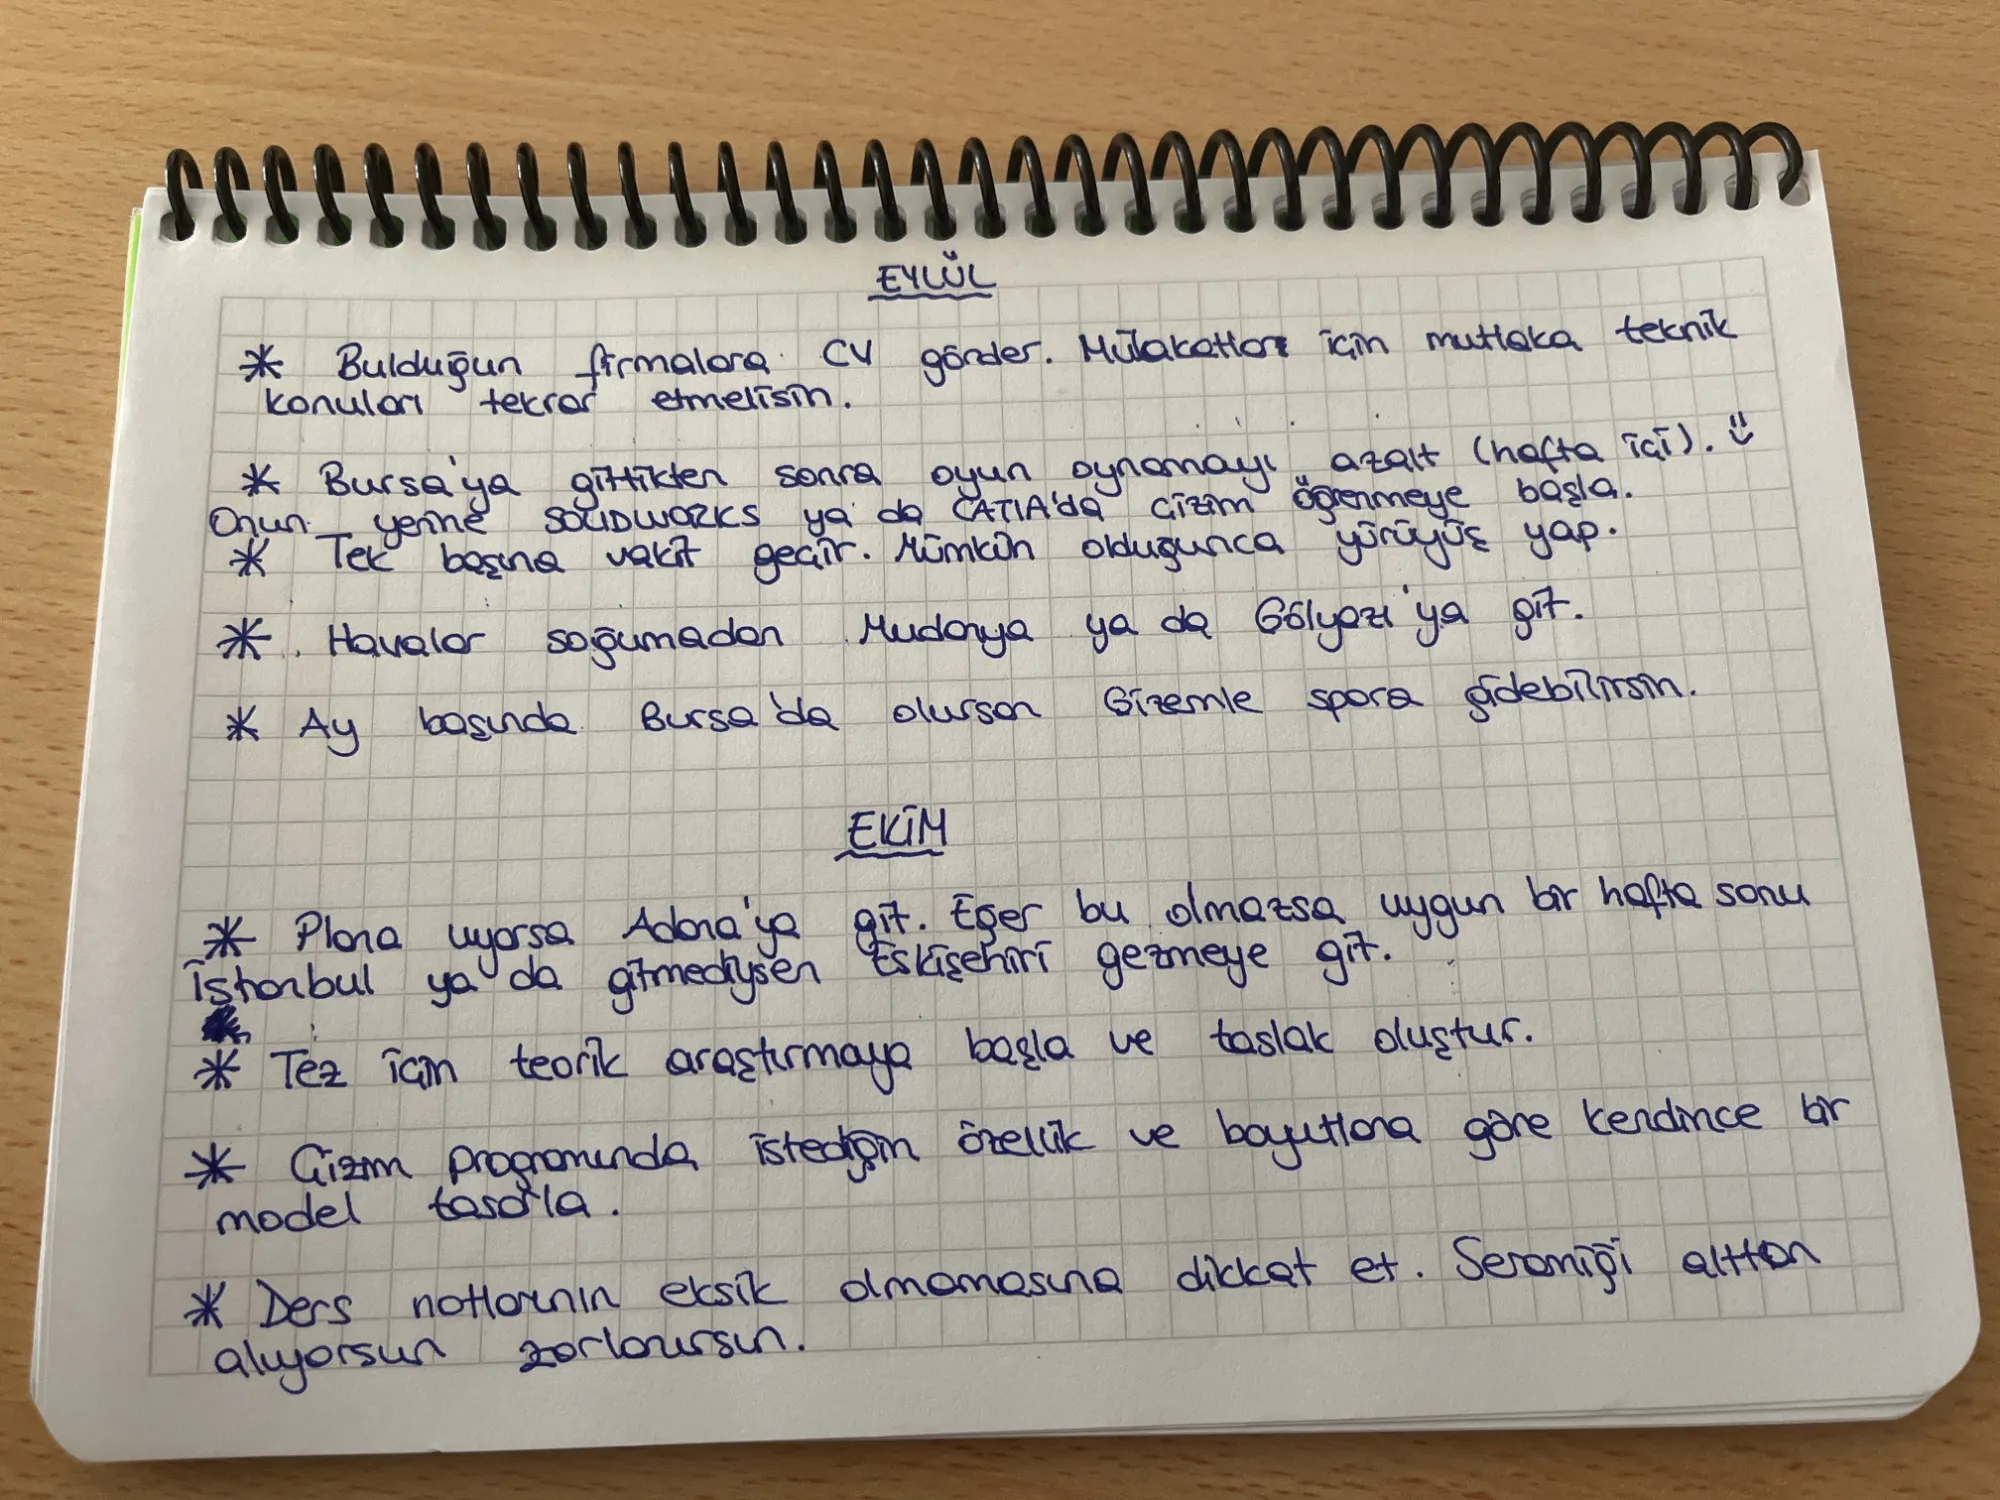 EYLÜL
* Bulduğun firmalara CV gönder. Mülakatlar için mutlaka teknik
konuları tekrar etmelisin.
* Bursa'ya gittikten sonra oyun oynamayı azalt (hafta içi). :)
Onun yerine SOLIDWORKS ya da CATIA'da çizim öğrenmeye başla.
* Tek başına vakit geçir. Mümkün olduğunca yürüyüş yap.
* Havalar soğumadan Mudanya ya da Gölyazı'ya git.
* Ay başında Bursa'da olursan Gizemle spora gidebilirsin.
EKİM
* Plana uyarsa Adana'ya git. Eğer bu olmazsa uygun bir hafta sonu
İstanbul ya da gitmediysen Eskişehiri gezmeye git.
* Tez için teorik araştırmaya başla ve taslak oluştur.
* Çizim programında istediğin özellik ve boyutlara göre kendince bir
model tasarla.
* Ders notlarının eksik olmamasına dikkat et. Seramiği alttan
alıyorsun zorlanırsın.